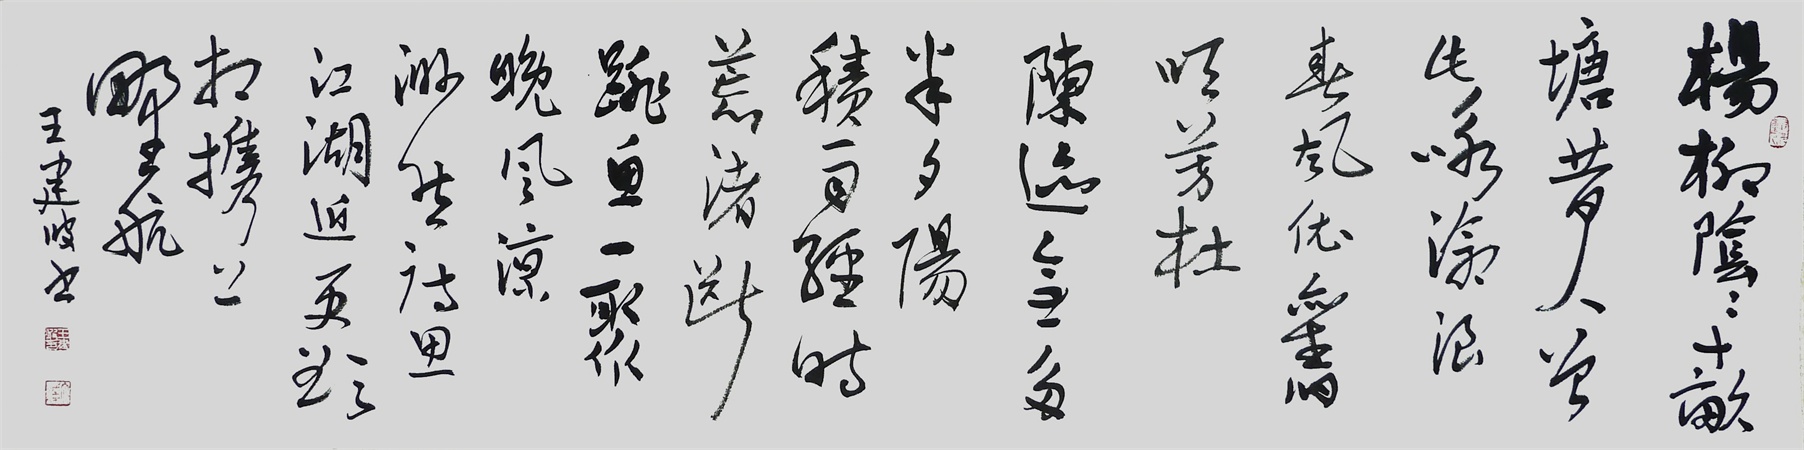 楊柳陰々十畝
塘昔人曾
此咏滄浪
春風依舊
吹芳杜
陳迹無多
半夕陽
積雨經時
荒渚斷
跳魚一聚
晚風涼
渺然詩思
江湖近更欲
相攜上
野航
王建波书